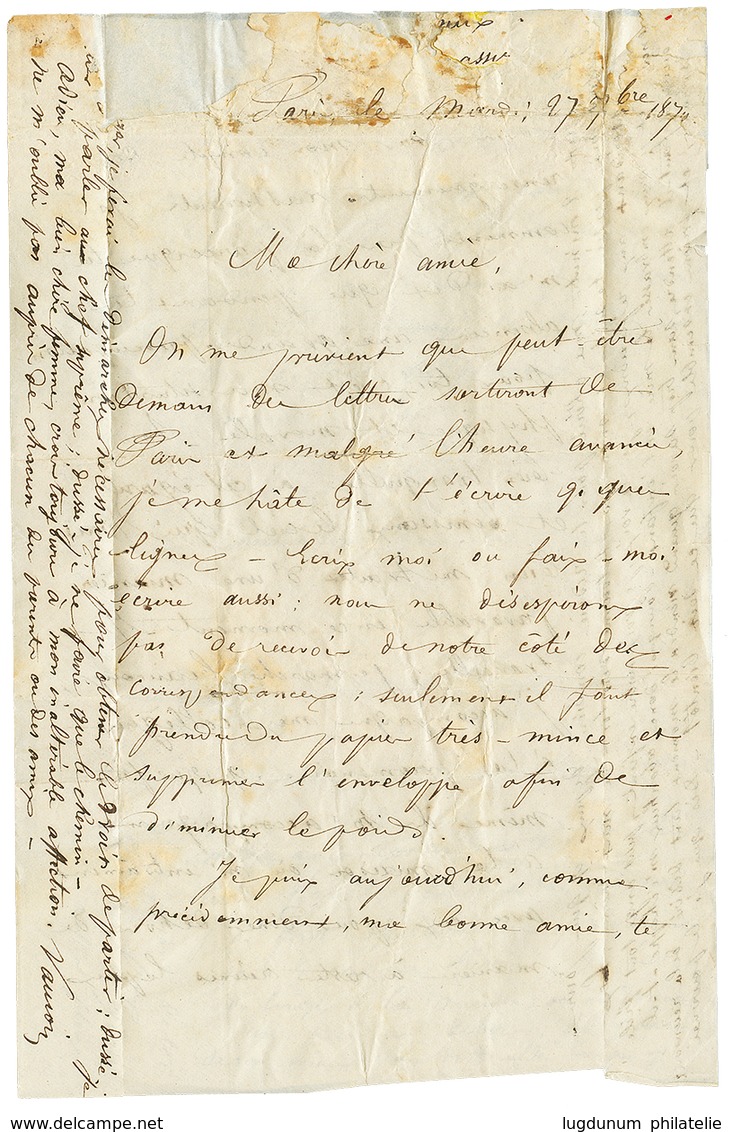 aux
Paris, le Mardi, 27 7bre 1870
Ma chère amie,
On me prévient que peut-être
demain des lettres sortiront de
Paris et malgré l'heure avancée,
je me hâte de t'écrire q. ques
lignes - Ecris moi ou fais-moi
écrire aussi ; nous ne désespérons
pas de recevoir de notre côté des
correspondances ; seulement il faut
prendre du papier très-mince et
supprimer l'enveloppe afin de
diminuer le poids.
Je puis aujourd'hui, comme
précédemment, ma bonne amie, te
je ferai les démarches nécessaires pour obtenir le droit de partir ; dussé-je
parler au chef suprême ; dussé-je ne faire que le chemin -
Adieu, ma bien chère femme, crois toujours à mon inaltérable affection.
ne m'oublie pas auprès de chacun des parents ou des amis -
delcampe.net
lugdunum philatelie